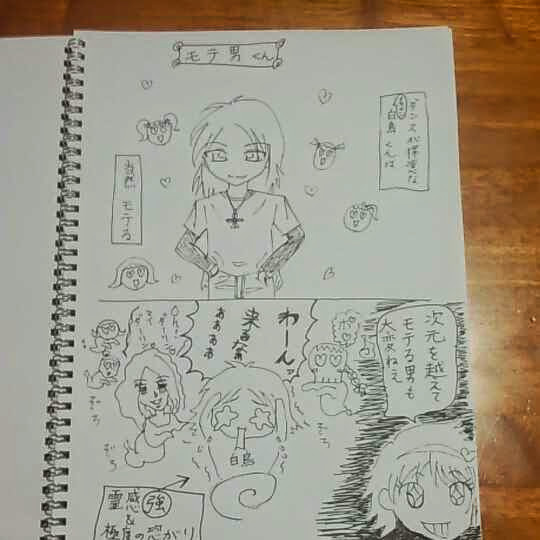 モテ男くん
ダンスが得意な
白鳥くんは
当然
モテる
次元を越えて
モテる男も
大変ねえ
わーんッ
来るなぁ
ぁぁぁぁ
ポッ
ぞろ
ぞろ
ぞろ
白鳥
霊感 強
極度の恐がり